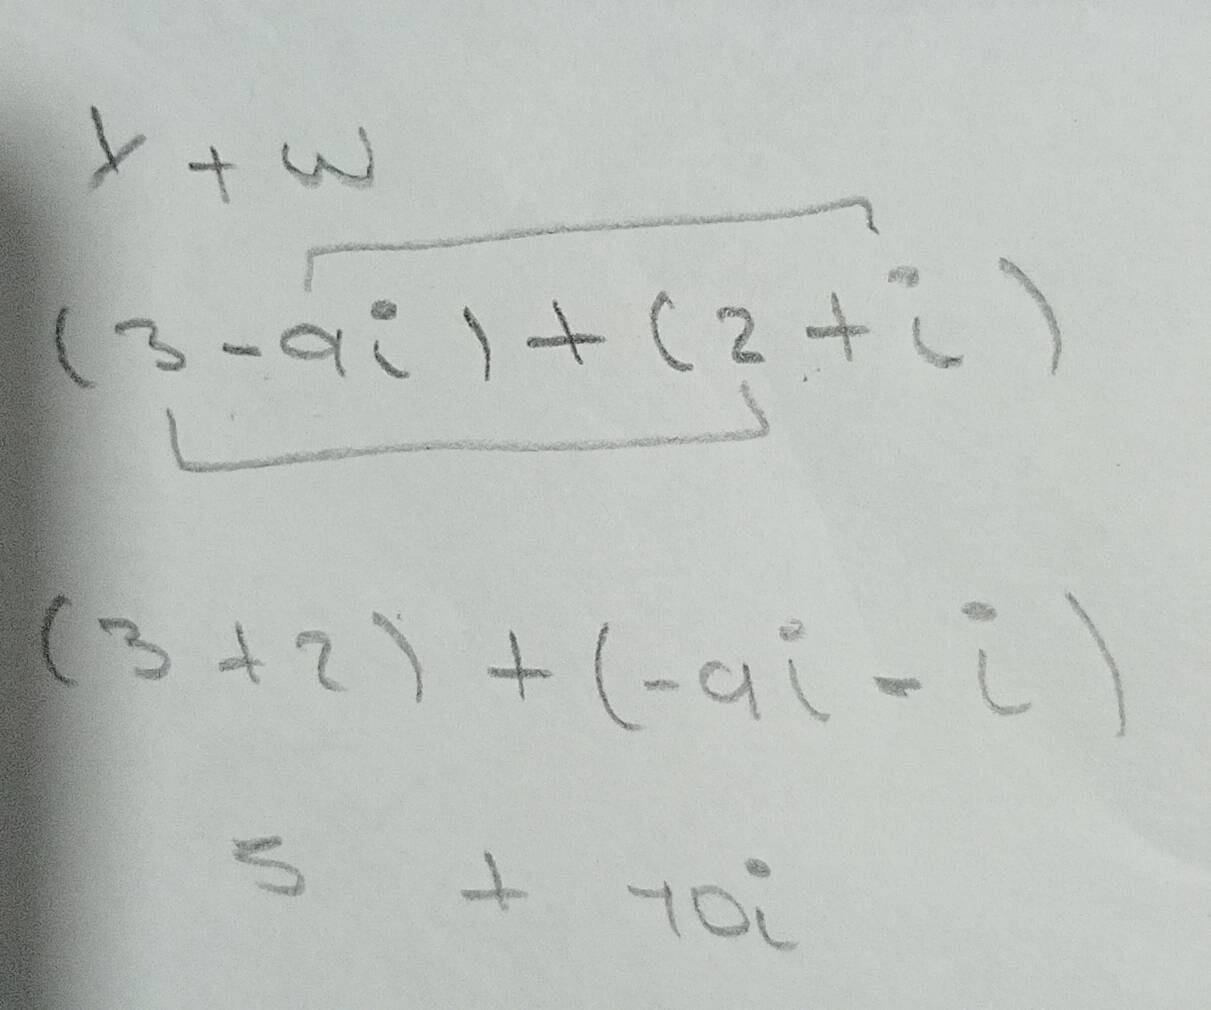 Y + w
(3 - 9i) + (2 + i)
(3 + 2) + (-9i - i)
5 + -10i